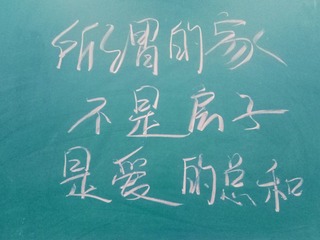 所谓的家
不是房子
是爱的总和